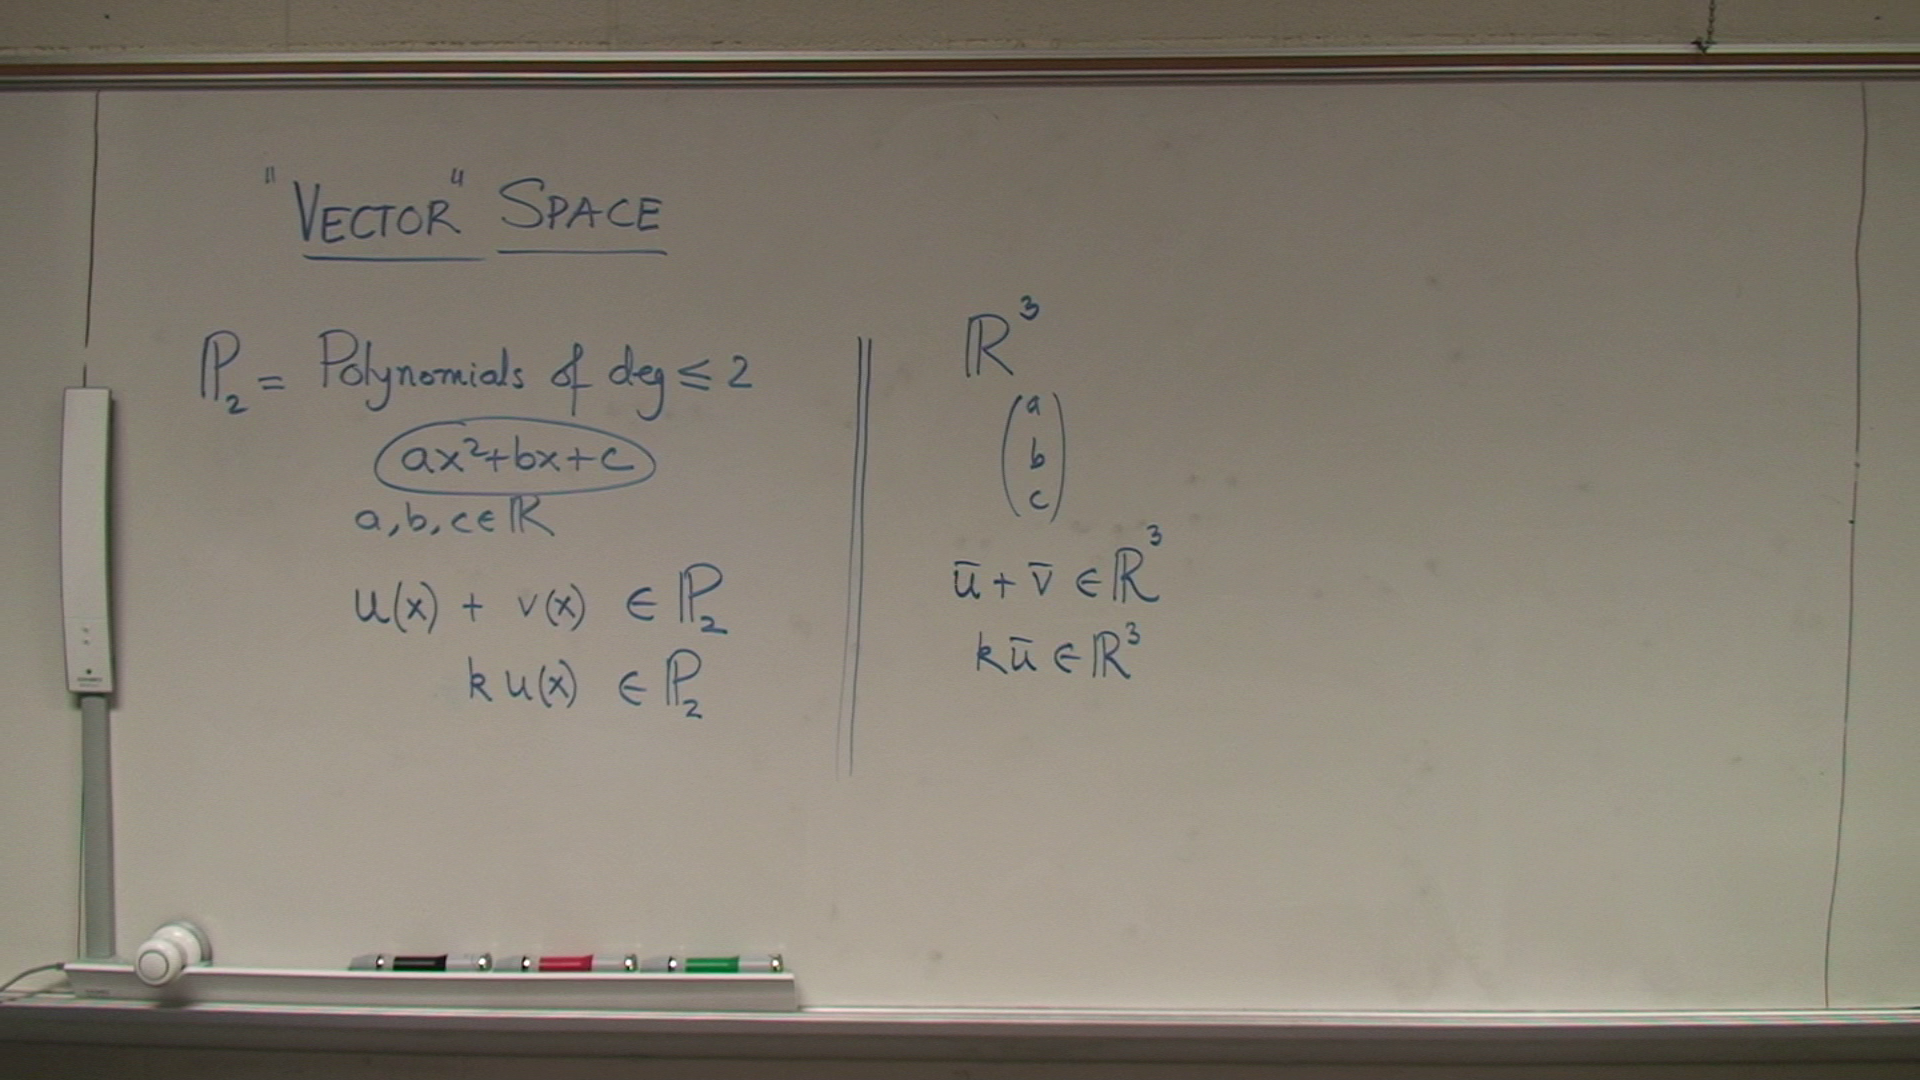 "VECTOR" SPACE
ℙ₂ = Polynomials of deg ≤ 2
ax²+bx+c
a, b, c ∈ ℝ
u(x) + v(x) ∈ ℙ₂
k u(x) ∈ ℙ₂
ℝ³
(a
b
c)
ū + v̄ ∈ ℝ³
kū ∈ ℝ³